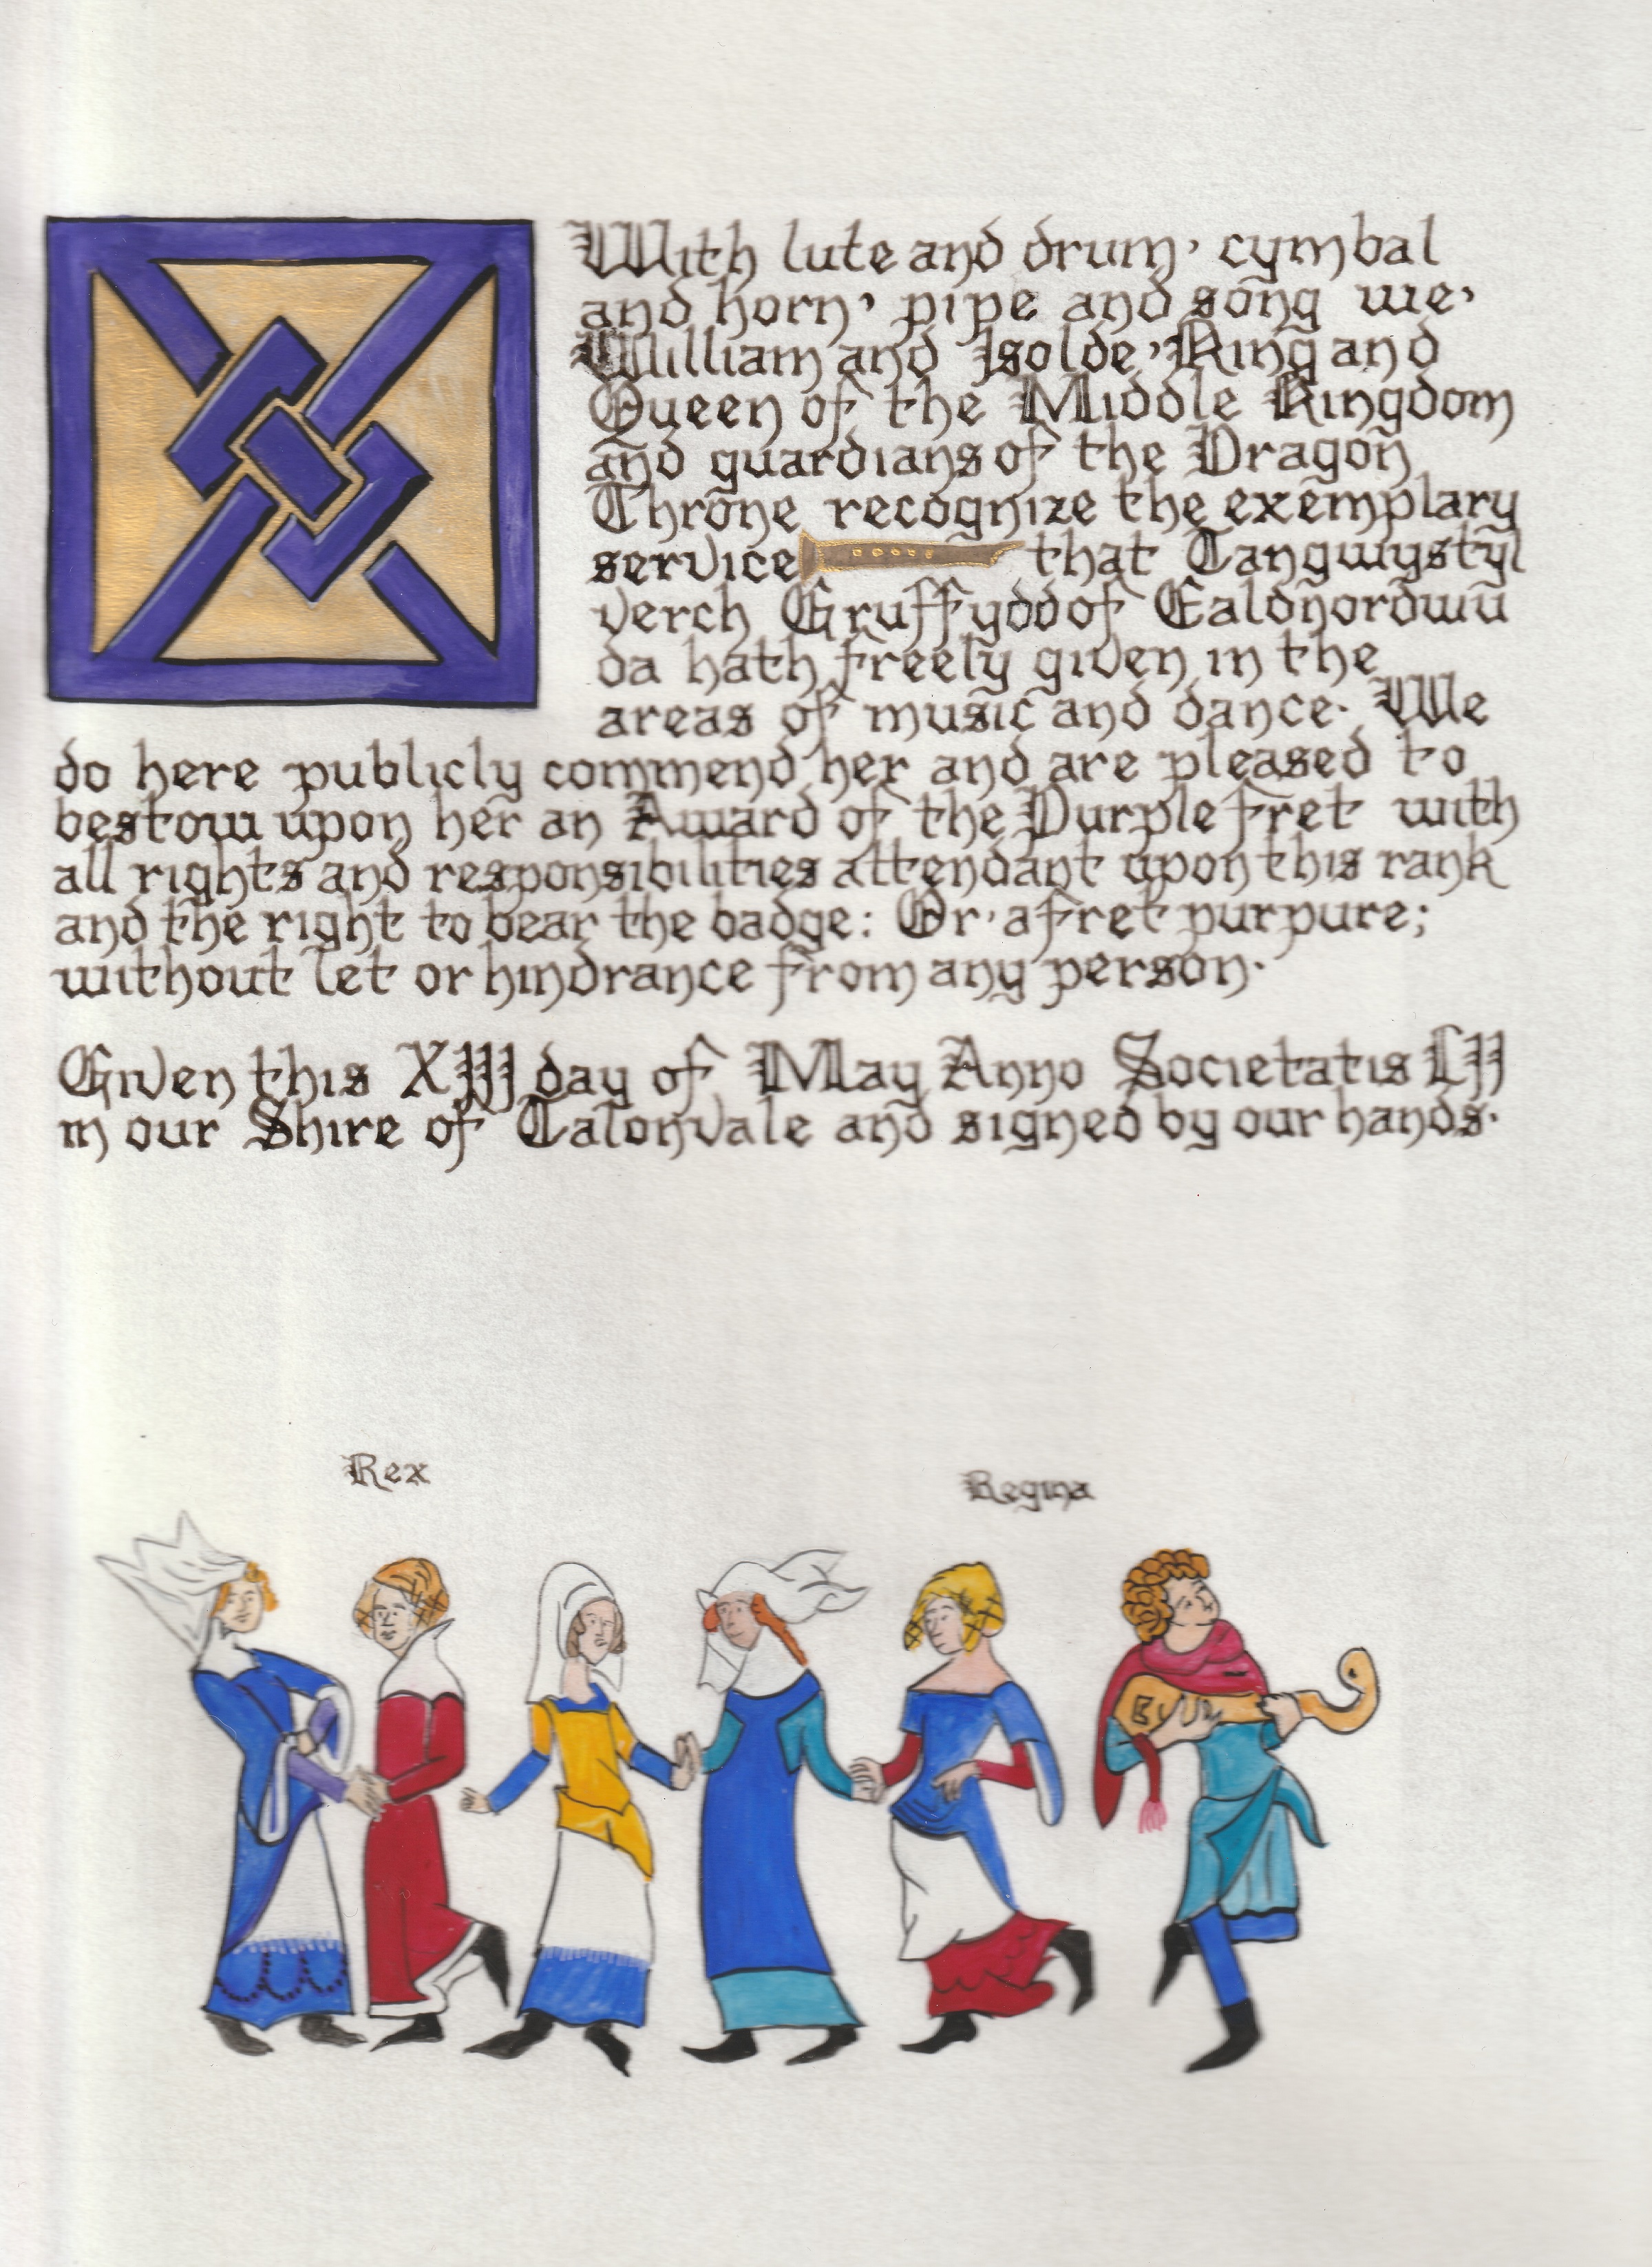 With lute and drum, cymbal
and horn, pipe and song we,
William and Isolde, King and
Queen of the Middle Kingdom
and guardians of the Dragon
Throne recognize the exemplary
service that Tangwystyl
verch Gruffydd of Ealdnordwu
da hath freely given in the
areas of music and dance. We
do here publicly commend her and are pleased to
bestow upon her an Award of the Purple fret with
all rights and responsibilities attendant upon this rank
and the right to bear the badge: Or, a fret purpure;
without let or hindrance from any person.
Given this XIII day of May Anno Societatis LII
in our Shire of Talonvale and signed by our hands.
Rex
Regina